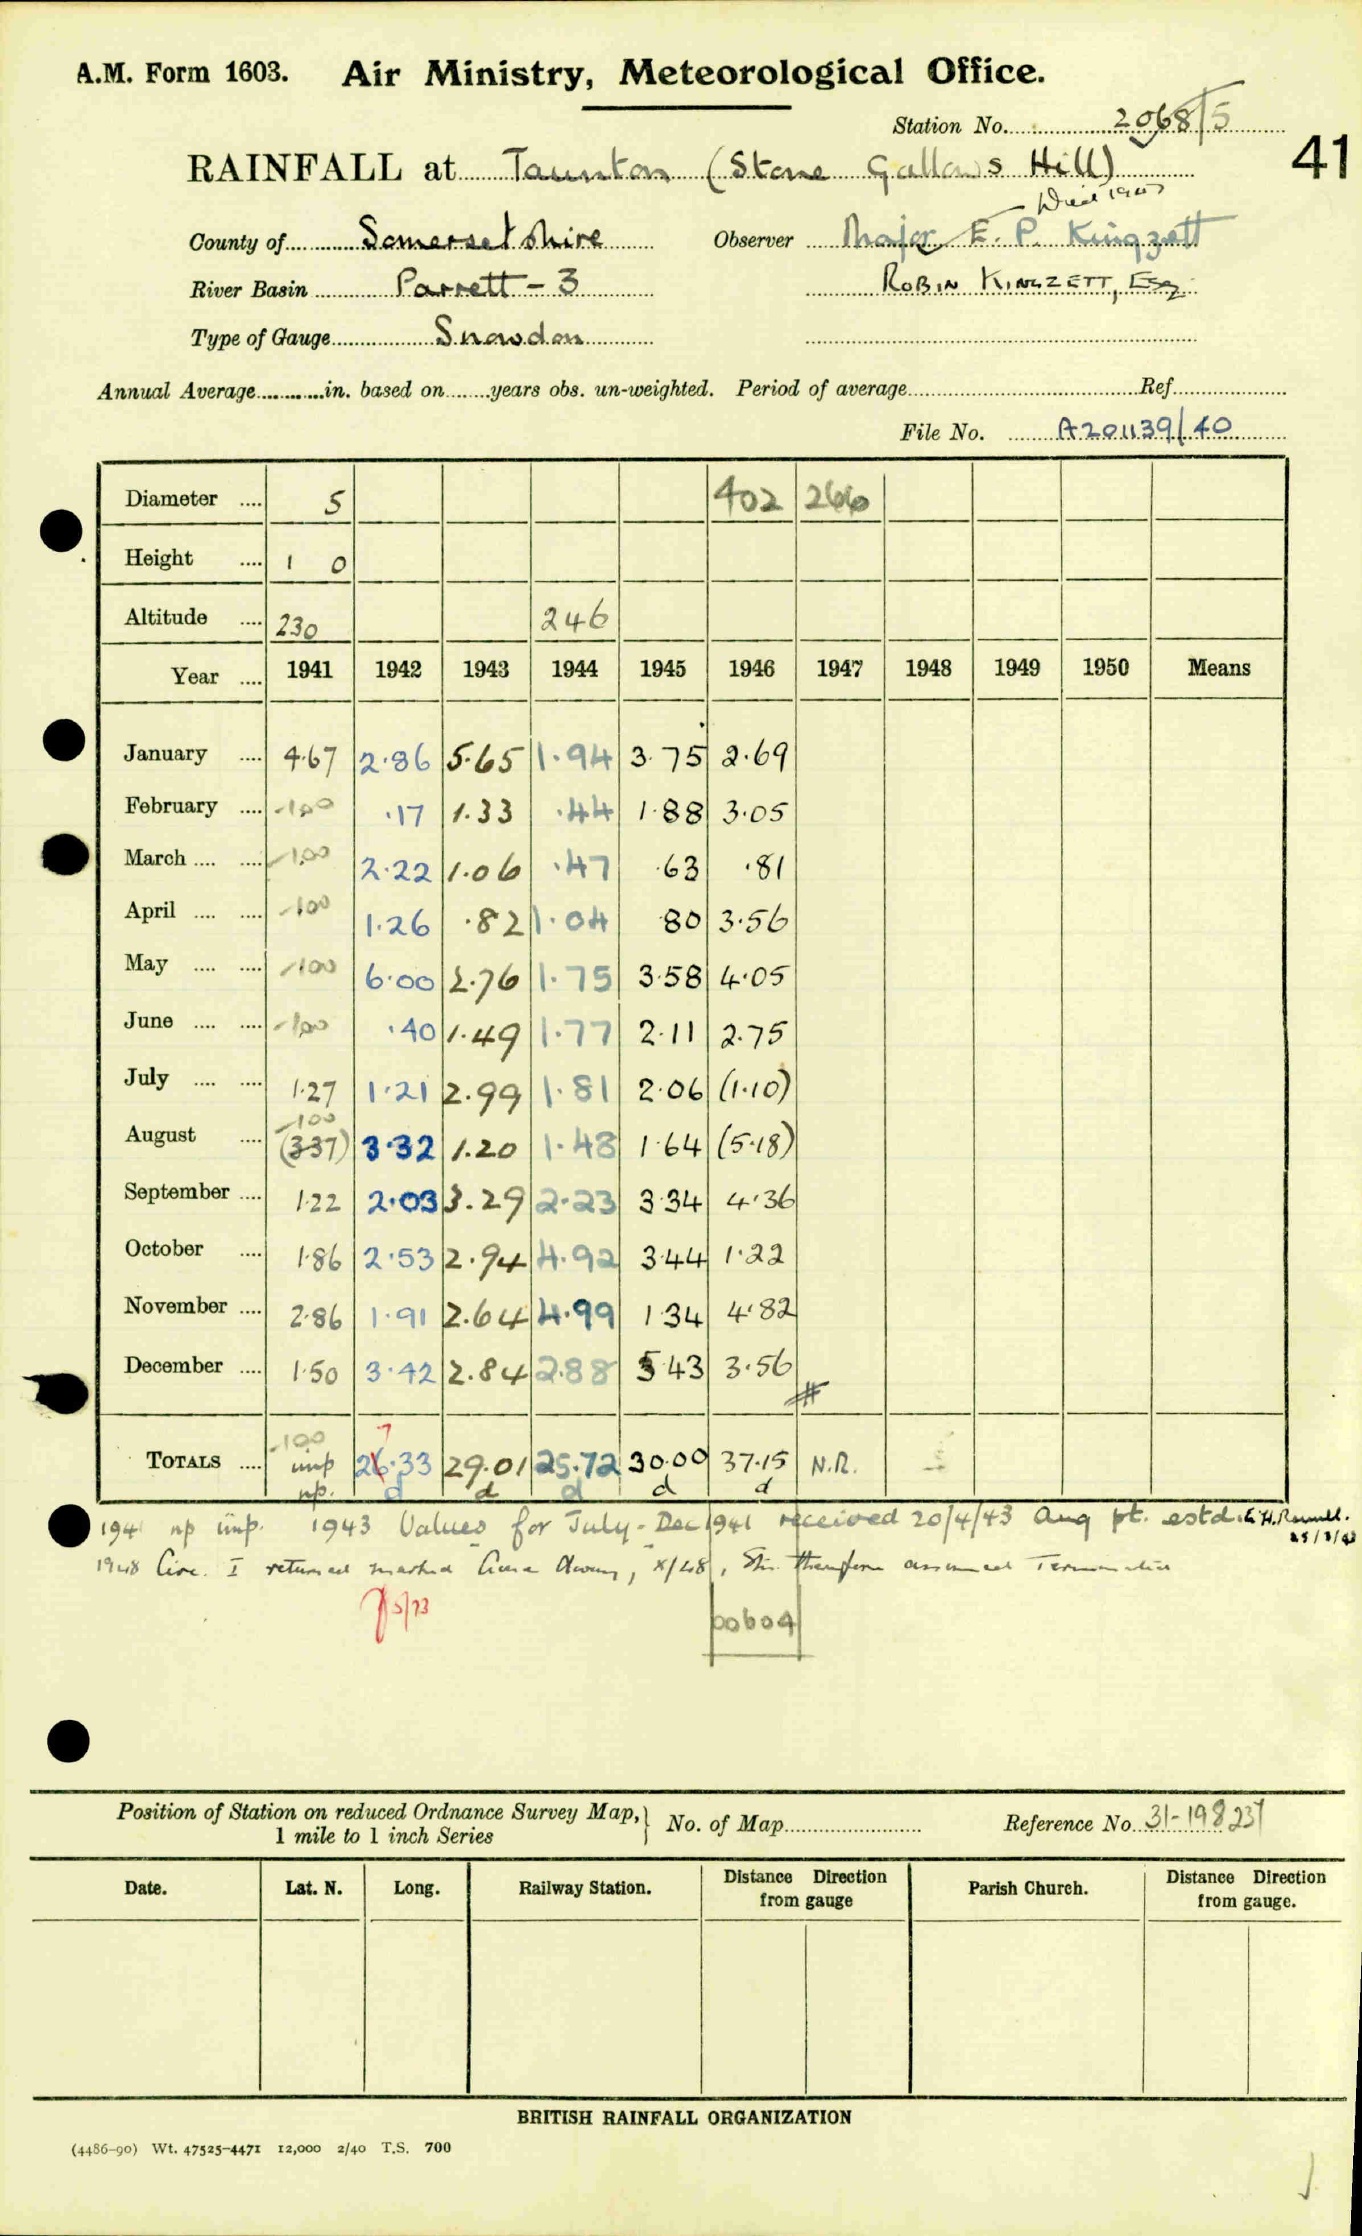 A.M. Form 1603. Air Ministry, Meteorological Office.
Station No. 2068/5
41
RAINFALL at Taunton (Stone Gallows Hill)
Died 1947
County of Somersetshire Observer Major E. P. Kingzett
River Basin Parrett - 3 ROBIN KINGZETT, ESQ
Type of Gauge Snowdon
Annual Average in. based on years obs. un-weighted. Period of average Ref
File No. A201139/40
Diameter .... 5 402 266
Height .... 1 0
Altitude .... 230 246
Year .... 1941 1942 1943 1944 1945 1946 1947 1948 1949 1950 Means
January .... 4.67 2.86 5.65 1.94 3.75 2.69
February .... -100 .17 1.33 .44 1.88 3.05
March .... .... -100 2.22 1.06 .47 .63 .81
April .... .... -100 1.26 .82 1.04 .80 3.56
May .... .... -100 6.00 2.76 1.75 3.58 4.05
June .... .... -100 .40 1.49 1.77 2.11 2.75
July .... .... 1.27 1.21 2.99 1.81 2.06 (1.10)
-100
August .... (3.37) 3.32 1.20 1.48 1.64 (5.18)
September .... 1.22 2.03 3.29 2.23 3.34 4.36
October .... 1.86 2.53 2.94 4.92 3.44 1.22
November .... 2.86 1.91 2.64 4.99 1.34 4.82
December .... 1.50 3.42 2.84 2.88 5.43 3.56
#
-100 7
TOTALS .... imp 26.33 29.01 25.72 30.00 37.15 N.R.
np. d d d d d
1941 np imp. 1943 Values for July - Dec 1941 received 20/4/43 Aug pt. estd.
1948 Circ. I returned marked Gone Away, x/48, Stn. therefore assumed Terminated
5/73
00604
Position of Station on reduced Ordnance Survey Map, 1 mile to 1 inch Series } No. of Map Reference No 31-198237
Date. Lat. N. Long. Railway Station. Distance Direction from gauge Parish Church. Distance Direction from gauge.
BRITISH RAINFALL ORGANIZATION
(4486-90) Wt. 47525-4471 12,000 2/40 T.S. 700